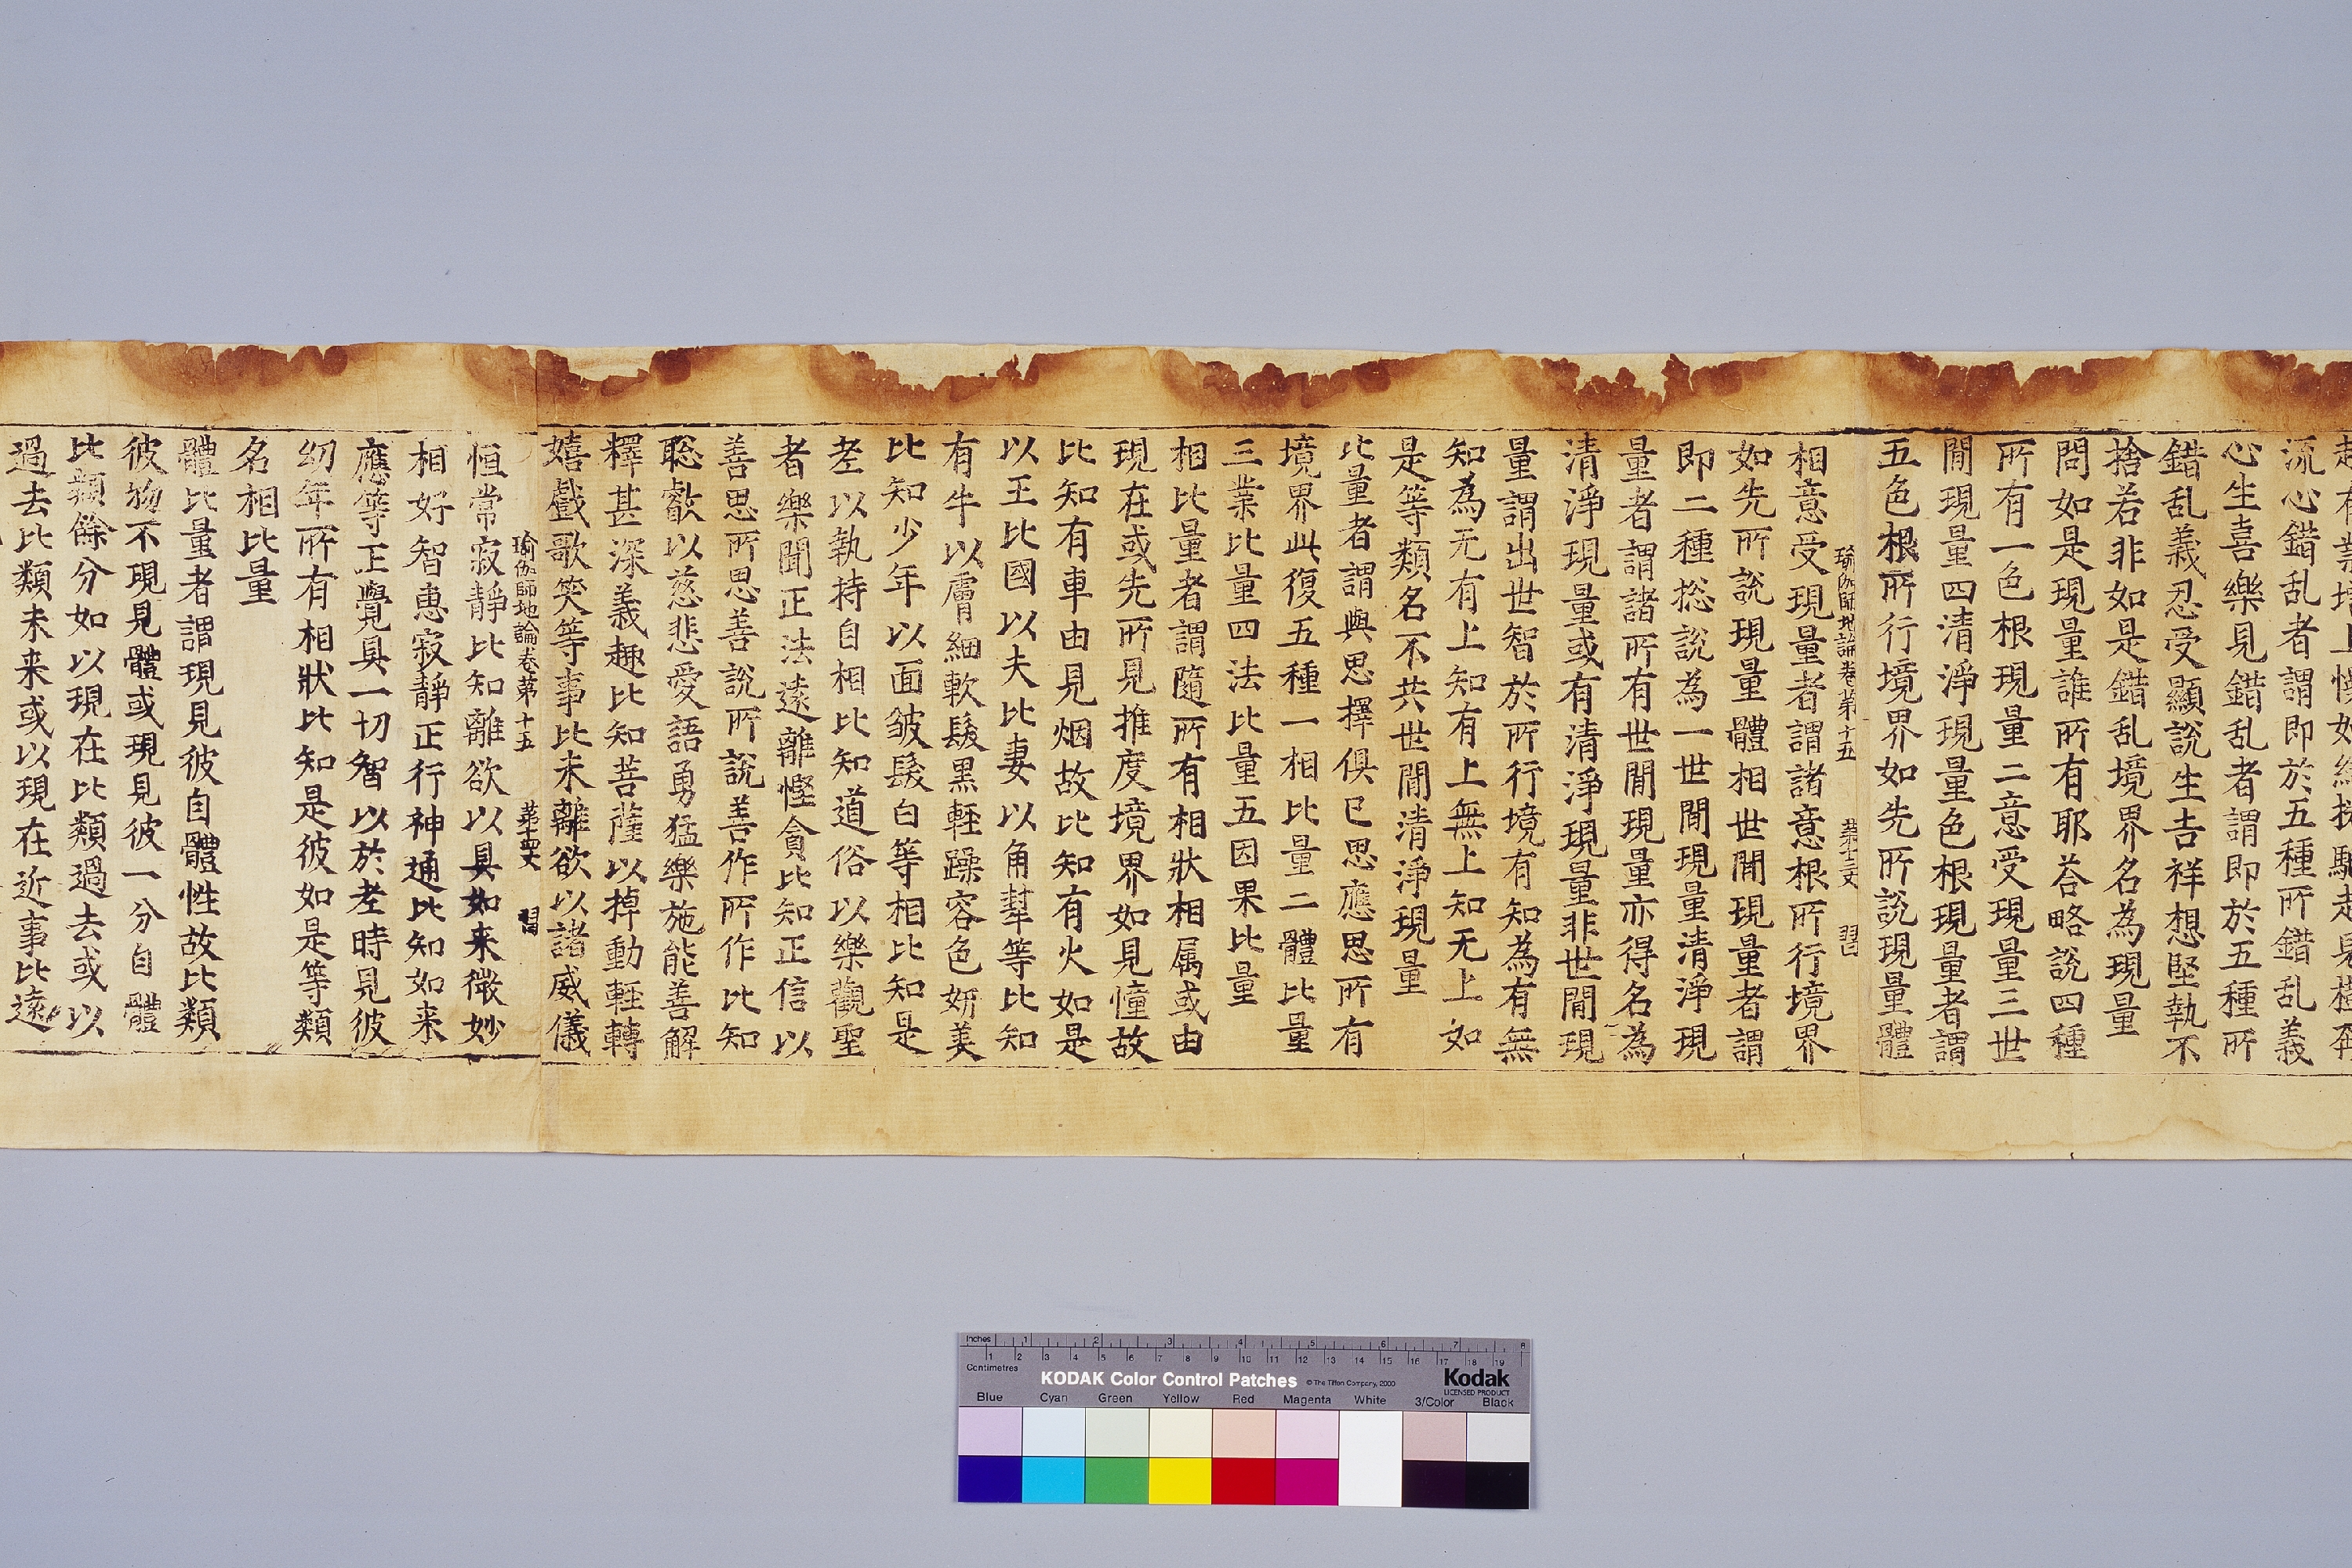 流心錯乱者謂即於五種所錯乱義
心生喜樂見錯乱者謂即於五種所
錯乱義忍受顯說生吉祥想堅執不
捨若非如是錯乱境界名為現量
問如是現量誰所有耶荅略說四種
所有一色根現量二意受現量三世
閒現量四清淨現量色根現量者謂
五色根所行境界如先所說現量體
瑜伽師地論卷第十五 第十三丈 習
相意受現量者謂諸意根所行境界
如先所說現量體相世閒現量者謂
即二種捴說為一世閒現量清淨現
量者謂諸所有世閒現量亦得名為
清淨現量或有清淨現量非世閒現
量謂出世智於所行境有知為有無
知為无有上知有上無上知无上如
是等類名不共世閒清淨現量
比量者謂與思擇俱已思應思所有
境界此復五種一相比量二體比量
三業比量四法比量五因果比量
相比量者謂隨所有相狀相属或由
現在或先所見推度境界如見憧故
比知有車由見烟故比知有火如是
以王比國以夫比妻以角犎等比知
有牛以膚細軟髮黑輕躁容色妍美
比知少年以面皺髮白等相比知是
老以執持自相比知道俗以樂觀聖
者樂聞正法遠離慳貪比知正信以
善思所思善說所說善作所作比知
聡叡以慈悲愛語勇猛樂施能善解
釋甚深義趣比知菩薩以掉動輕轉
嬉戲歌笑等事比未離欲以諸威儀
瑜伽師地論卷第十五 第十四丈 習
恒常寂靜比知離欲以具如来微妙
相好智惠寂靜正行神通比知如来
應等正覺具一切智以於老時見彼
幼年所有相狀比知是彼如是等類
名相比量
體比量者謂現見彼自體性故比類
彼物不現見體或現見彼一分自體
比類餘分如以現在比類過去或以
過去比類未来或以現在近事比遠
Inches 1 2 3 4 5 6 7 8
Centimetres 1 2 3 4 5 6 7 8 9 10 11 12 13 14 15 16 17 18 19
KODAK Color Control Patches © The Tiffen Company, 2000 Kodak
LICENSED PRODUCT
Blue Cyan Green Yellow Red Magenta White 3/Color Black